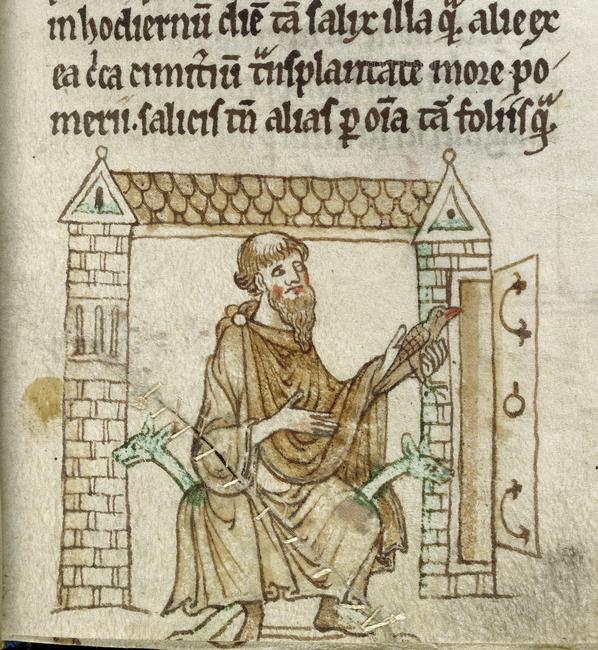 inhodiernū diē tā salix illa q̄. alie ex
ea dc̄a cimit̄iū tn̄splantate more po
merii. salicis tn̄ alias ꝑ oīa tā foliis q̄